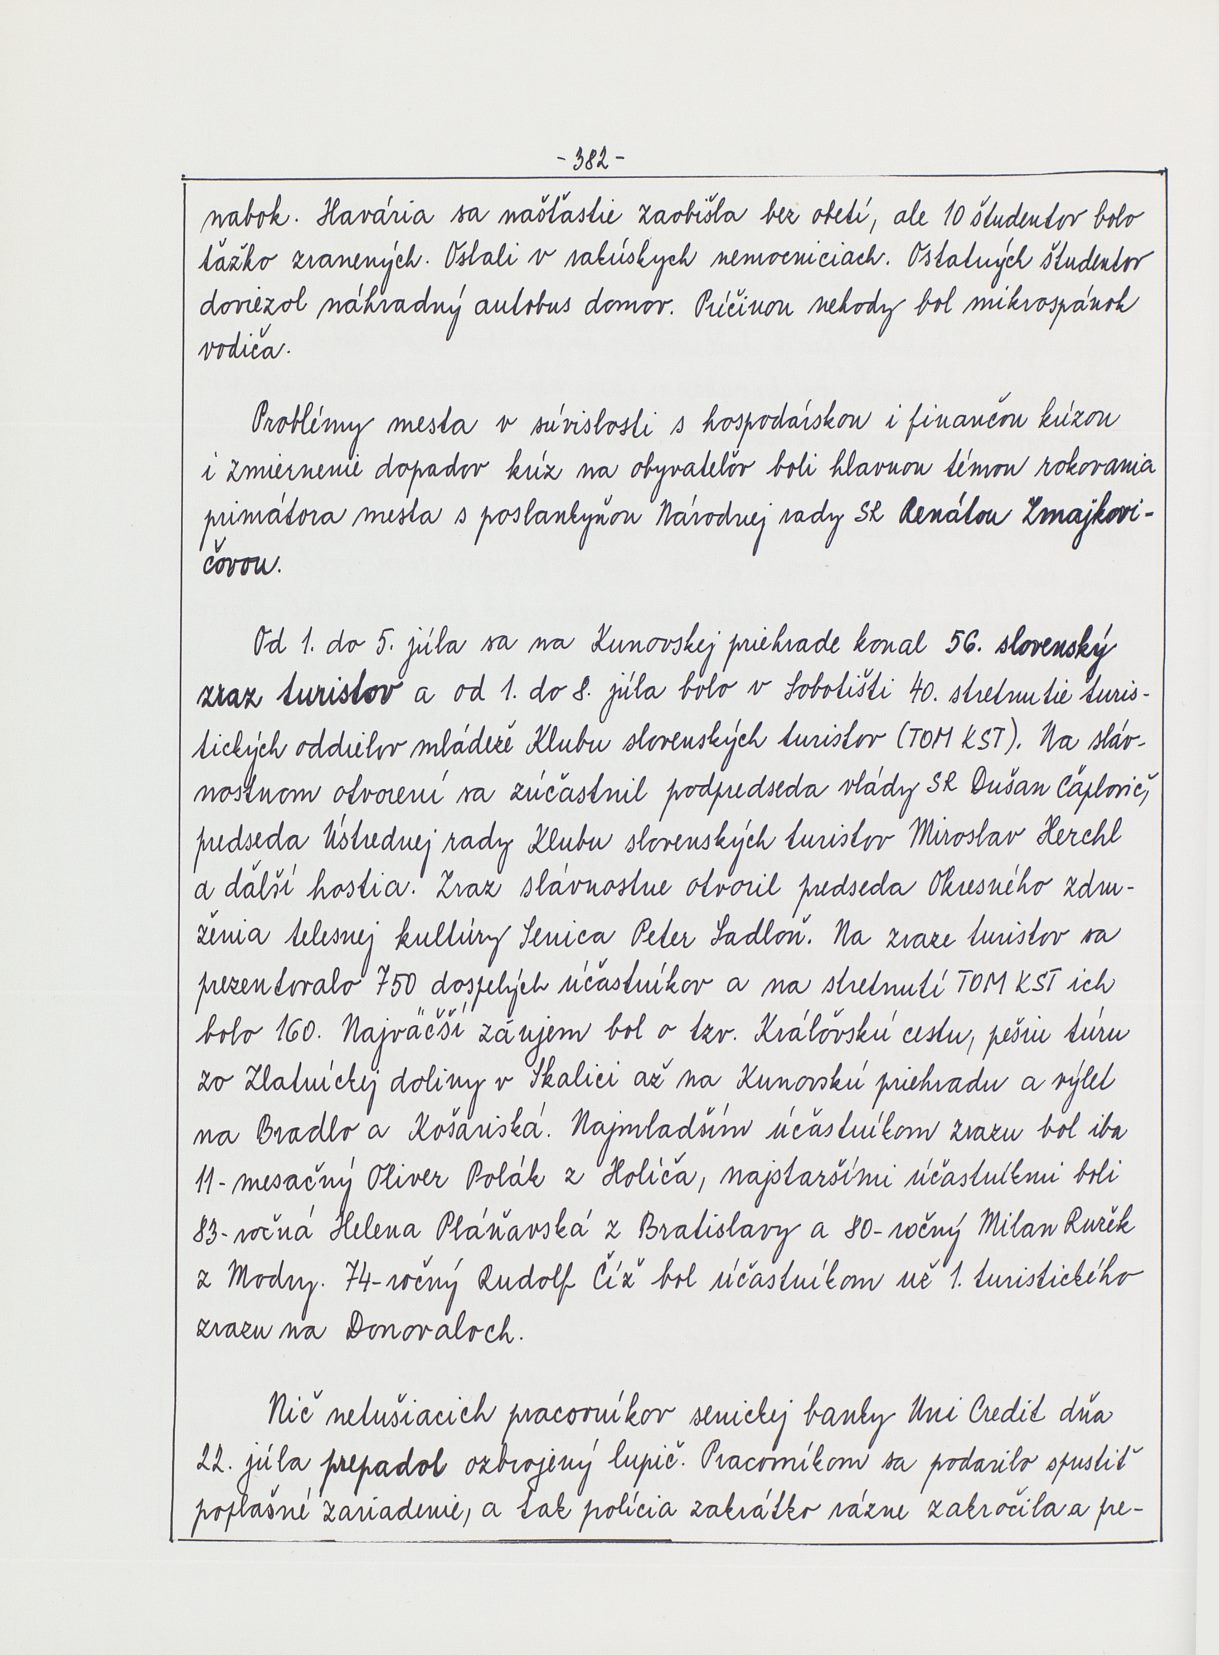 - 382 -
nabok. Havária sa našťastie zaobišla bez obetí, ale 10 študentov bolo
ťažko zranených. Ostali v rakúskych nemocniciach. Ostatných študentov
doviezol náhradný autobus domov. Príčinou nehody bol mikrospánok
vodiča.
Problémy mesta v súvislosti s hospodárskou i finančou krízou
i zmiernenie dopadov kríz na obyvateľov boli hlavnou témou rokovania
primátora mesta s poslankyňou Národnej rady SR Renátou Zmajkovi-
čovou.
Od 1. do 5. júla sa na Kunovskej priehrade konal 56. slovenský
zraz turistov a od 1. do 8. júla bolo v Sobotišti 40. stretnutie turis-
tických oddielov mládeže Klubu slovenských turistov (TOM KST). Na sláv-
nostnom otvorení sa zúčastnil podpredseda vlády SR Dušan Čaplovič,
predseda Ústrednej rady Klubu slovenských turistov Miroslav Herchl
a ďalší hostia. Zraz slávnostne otvoril predseda Okresného zdru-
ženia telesnej kultúry Senica Peter Sadloň. Na zraze turistov sa
prezentovalo 750 dospelých účastníkov a na stretnutí TOM KST ich
bolo 160. Najväčší záujem bol o tzv. Kráľovskú cestu, pešiu túru
zo Zlatníckej doliny v Skalici až na Kunovskú priehradu a výlet
na Bradlo a Košariská. Najmladším účastníkom zrazu bol iba
11-mesačný Oliver Polák z Holíča, najstaršími účastníkmi boli
83-ročná Helena Pláňavská z Bratislavy a 80-ročný Milan Ružek
z Modry. 74-ročný Rudolf Číž bol účastníkom už 1. turistického
zrazu na Donovaloch.
Nič netušiacich pracovníkov senickej banky Uni Credit dňa
22. júla prepadol ozbrojený lupič. Pracovníkom sa podarilo spustiť
poplašné zariadenie, a tak polícia zakrátko rázne zakročila a pre-